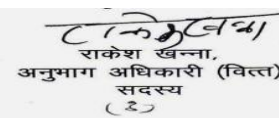 राकेश खन्ना,
अनुभाग अधिकारी (वित्त)
सदस्य
(2)